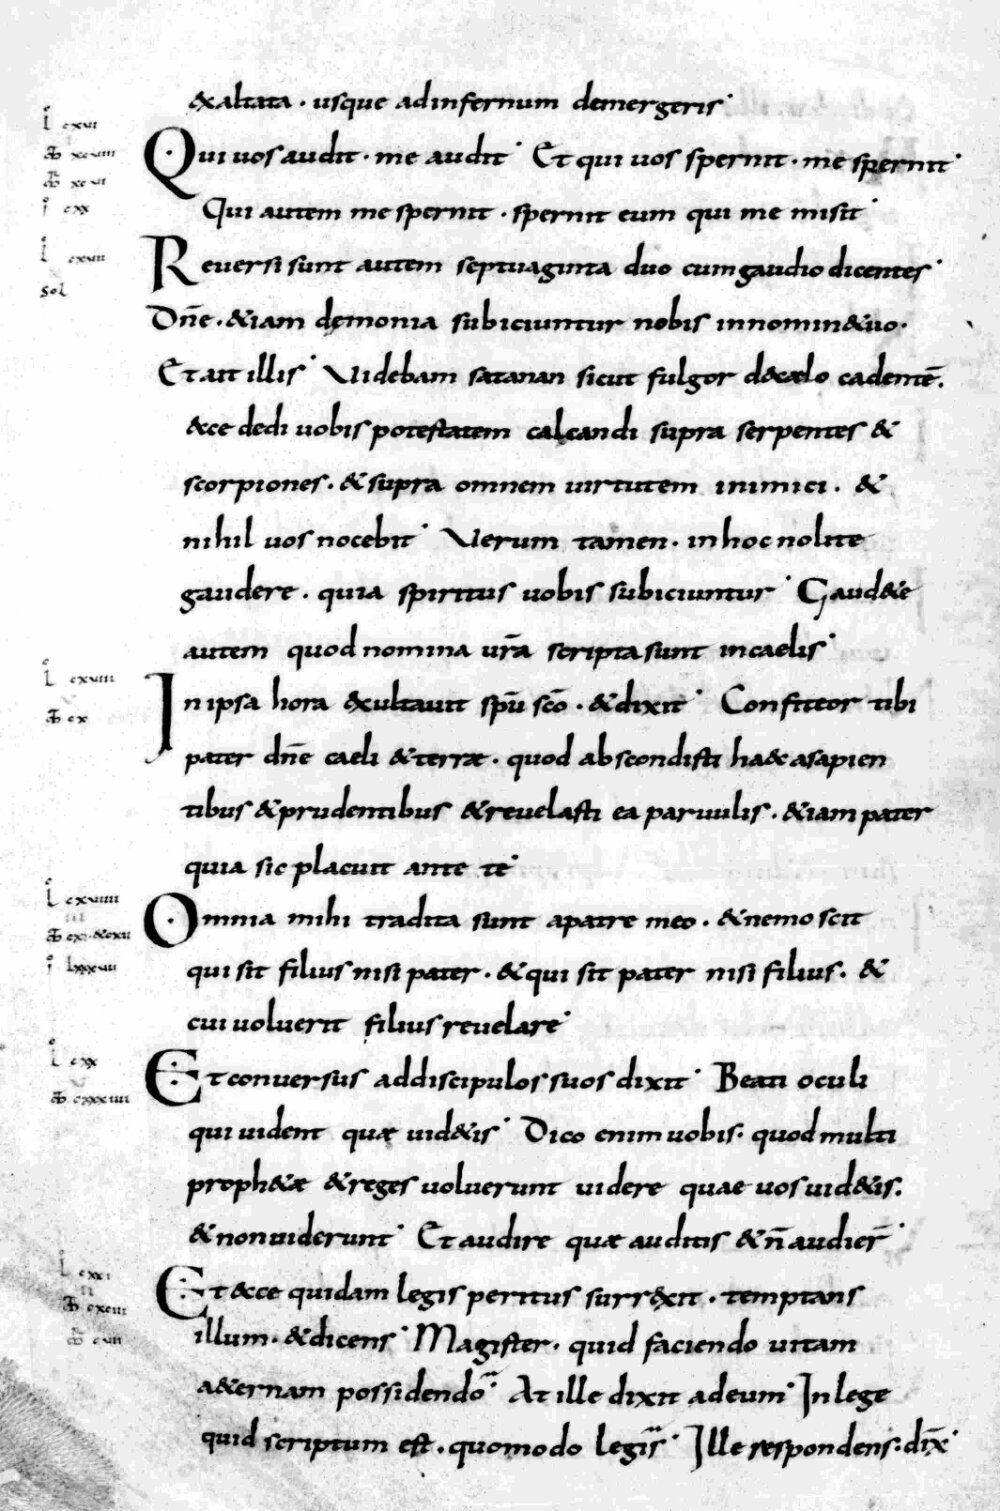 &xaltata · usque adinfernum demergeris·
L cxvi
Qui uos audit · me audit· Et qui uos spernit · me spernit·
I cxx
Qui autem me spernit · spernit eum qui me misit·
L cxviii
Reuersi sunt autem septuaginta duo cumgaudio dicentes·
Sol
Dn̄e · &iam demonia subiciuntur nobis innomin&uo·
Et ait illis· Uidebam satanan sicut fulgor d&caelo cadentē.
&cce dedi uobis potestatem calcandi supra serpentes &
scorpiones · & supra omnem uirtutem inimici · &
nihil uos nocebit· Uerum tamen · inhoc nolite
gaudere · quia spiritus uobis subiciuntur· Gaud&e
autem quod nomina ur̄a scripta sunt incaelis·
L cxviii
In ipsa hora &xultauit sp̄u sc̄o · &dixit· Confiteor tibi
pater dn̄e caeli &terræ · quod abscondisti ha&c asapien
tibus &prudentibus &reuelasti ea paruulis · &iam pater
quia sic placuit ante te·
L cxviiii
Omnia mihi tradita sunt apatre meo · &nemo scit
qui sit filius nisi pater · &qui sit pater nisi filius · &
cui uoluerit filius reuelare·
L cxx
Et conuersus addiscipulos suos dixit· Beati oculi
qui uident quæ uid&is· Dico enim uobis · quod multi
proph&æ &reges uoluerunt uidere quae uos uid&is.
&non uiderunt· Et audire quæ auditis &n̄ audier̄·
L cxxi
Et &cce quidam legis peritus surr&xit · temptans
illum · &dicens· Magister · quid faciendo uitam
a&ernam possidendo· At ille dixit adeum· In lege
quid scriptum est · quomodo legis· Ille respondens · dix̄·